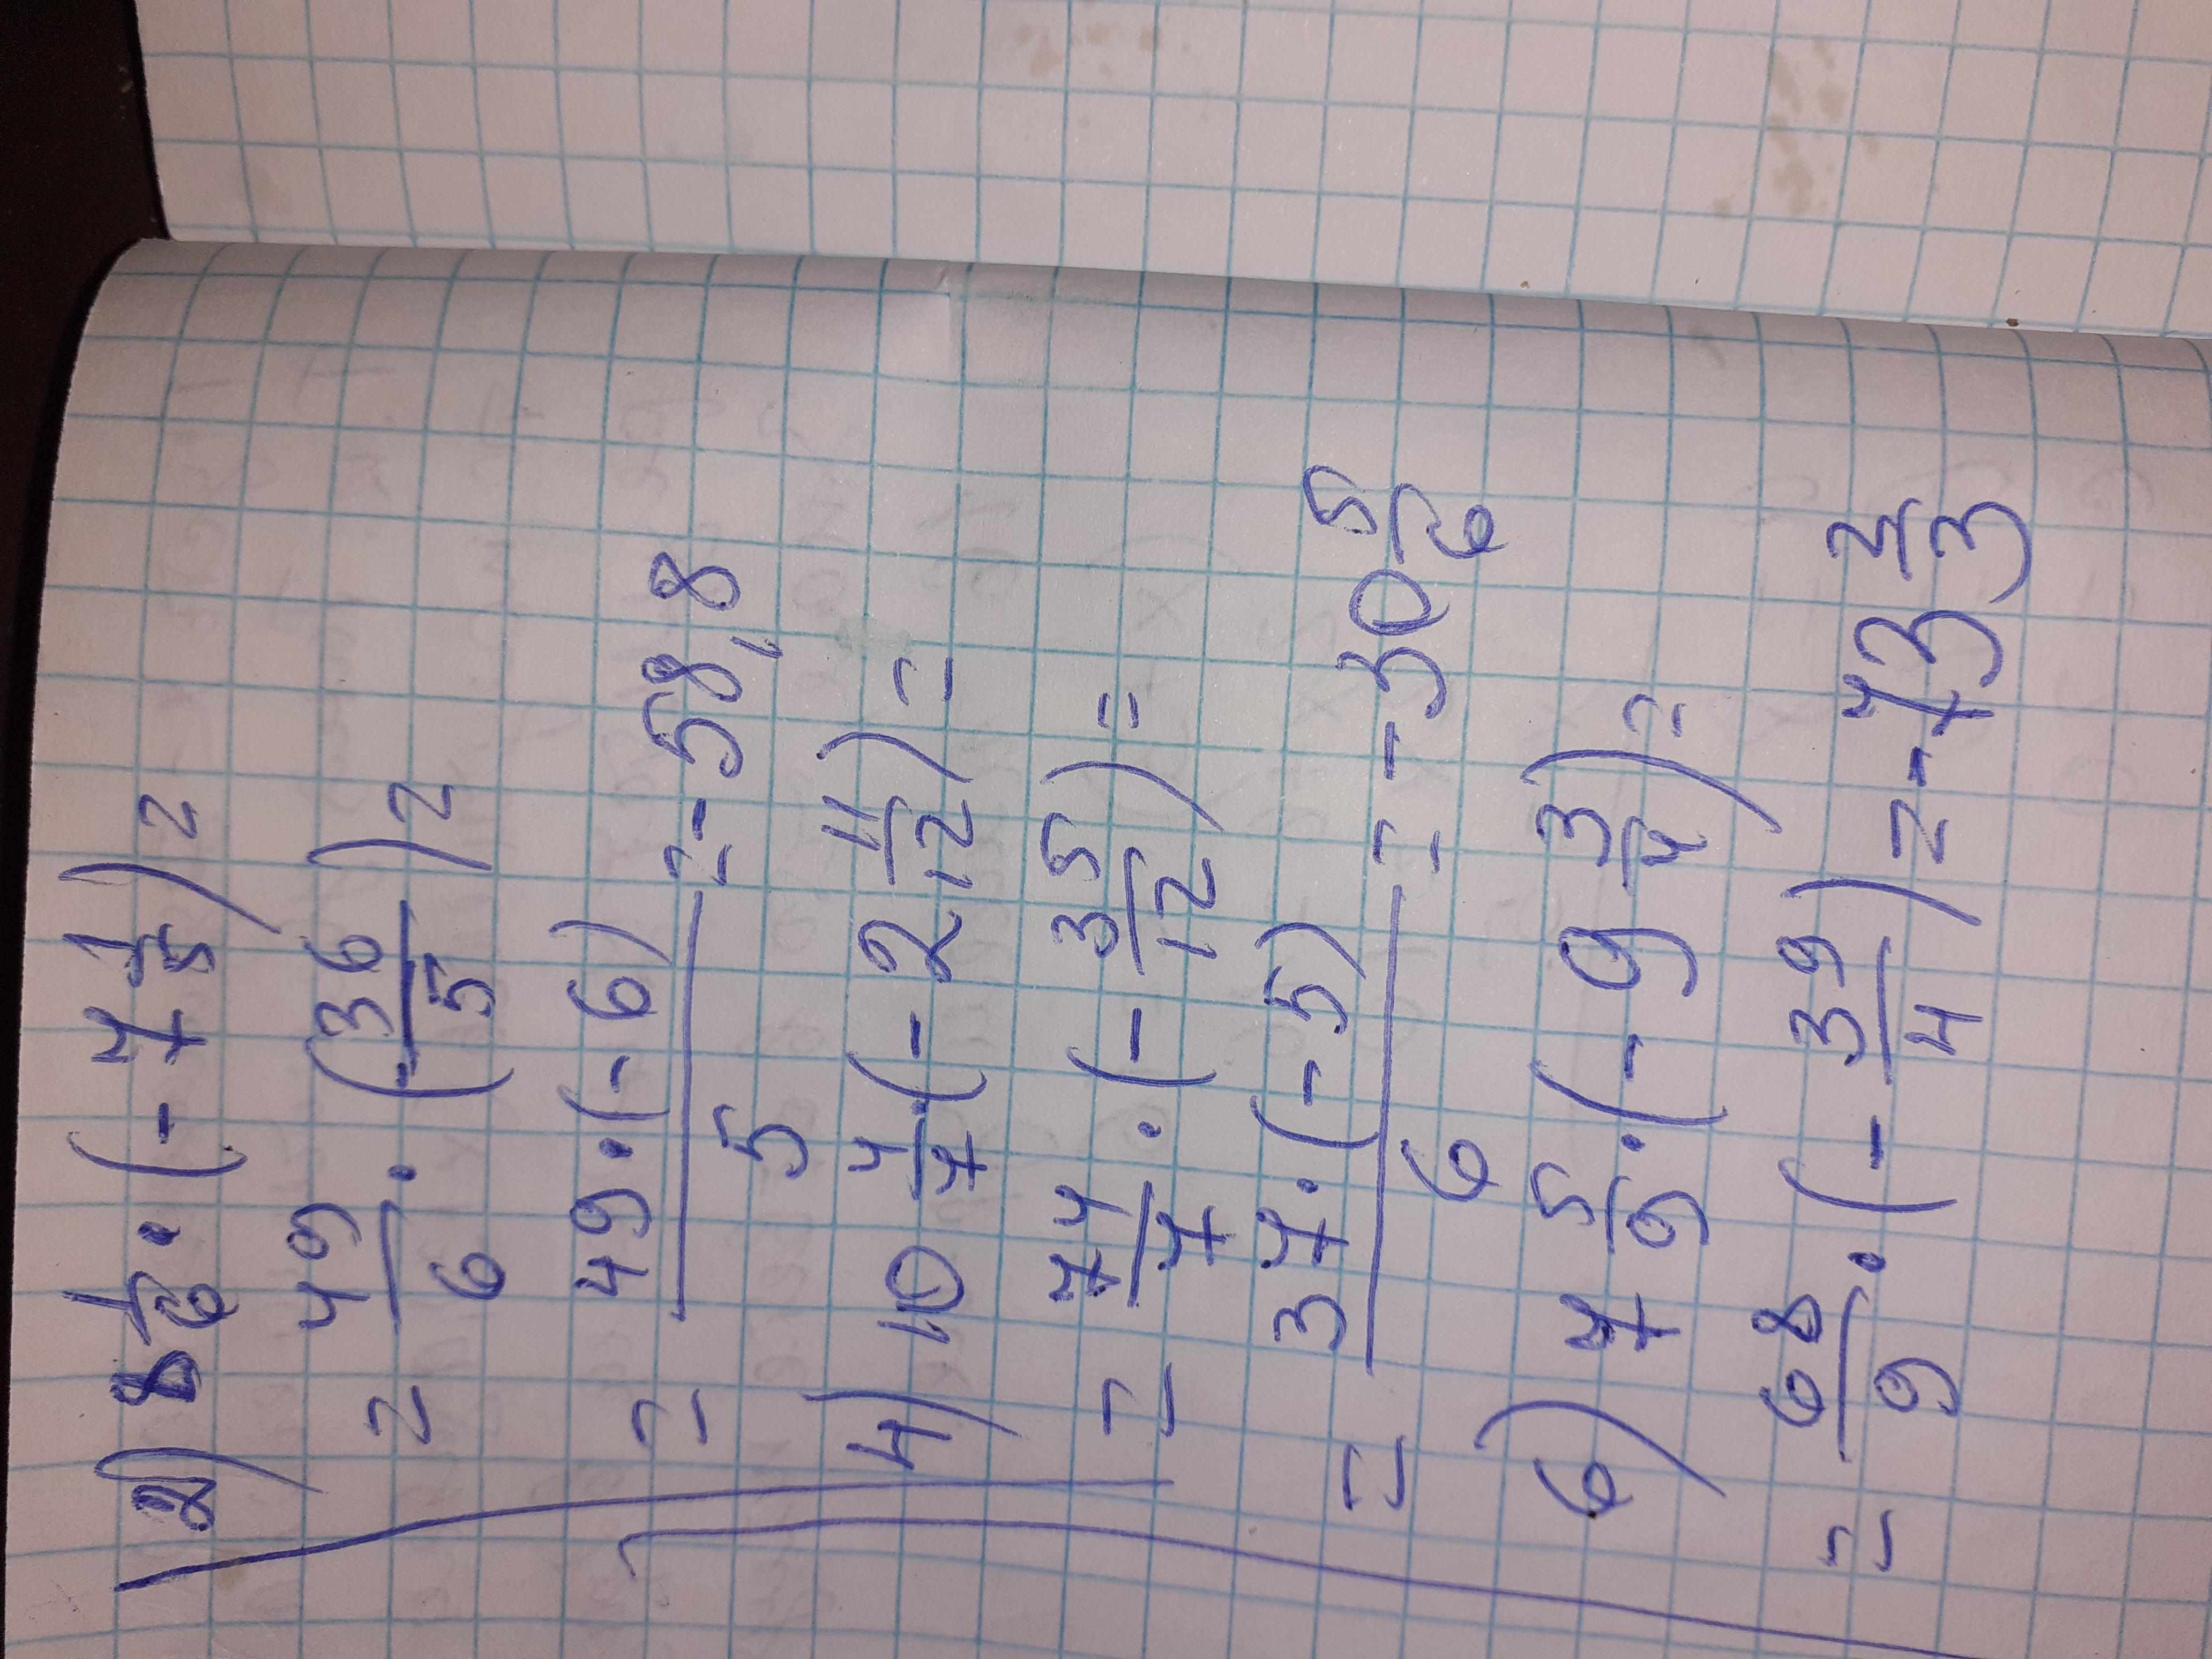 2) 8 1/6 · (- 7 1/5) =
= 49/6 · (- 36/5) =
= 49 · (- 6)/5 = - 58,8
4) 10 4/7 · (- 2 11/12) =
= 74/7 · (- 35/12) =
= 37 · (- 5)/6 = - 30 5/6
6) 7 5/9 · (- 9 3/4) =
= 68/9 · (- 39/4) = - 73 2/3